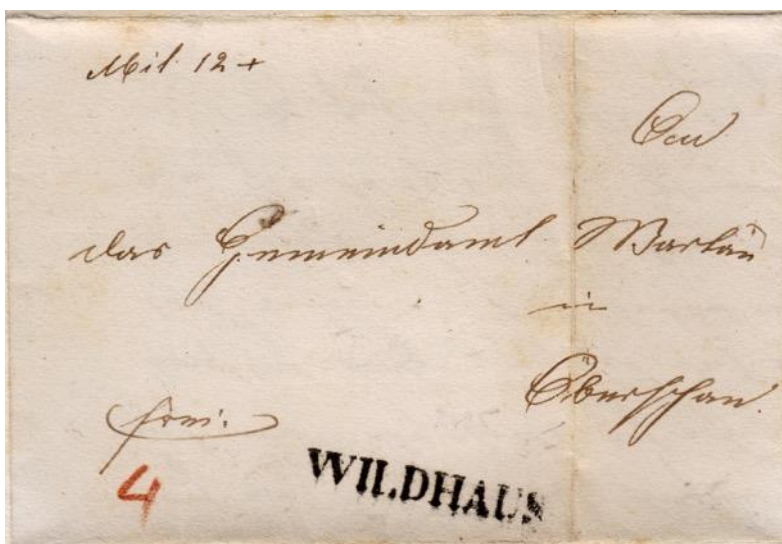 Mit 12 x
An
das Gemeindamt Wartau
in
Oberschan.
frei.
4
WILDHAUS